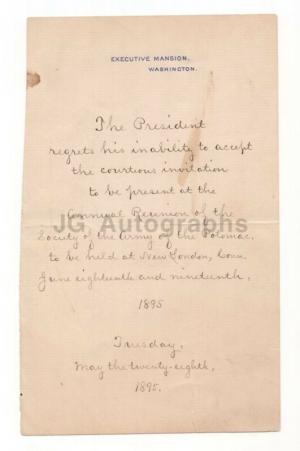 EXECUTIVE MANSION,
WASHINGTON.
The President
regrets his inability to accept
the courteous invitation
to be present at the
Annual Reunion of the
Society of the Army of the Potomac,
JG Autographs
to be held at New London, Conn.
June eighteenth and nineteenth,
1895
Tuesday,
May the twenty-eighth,
1895.